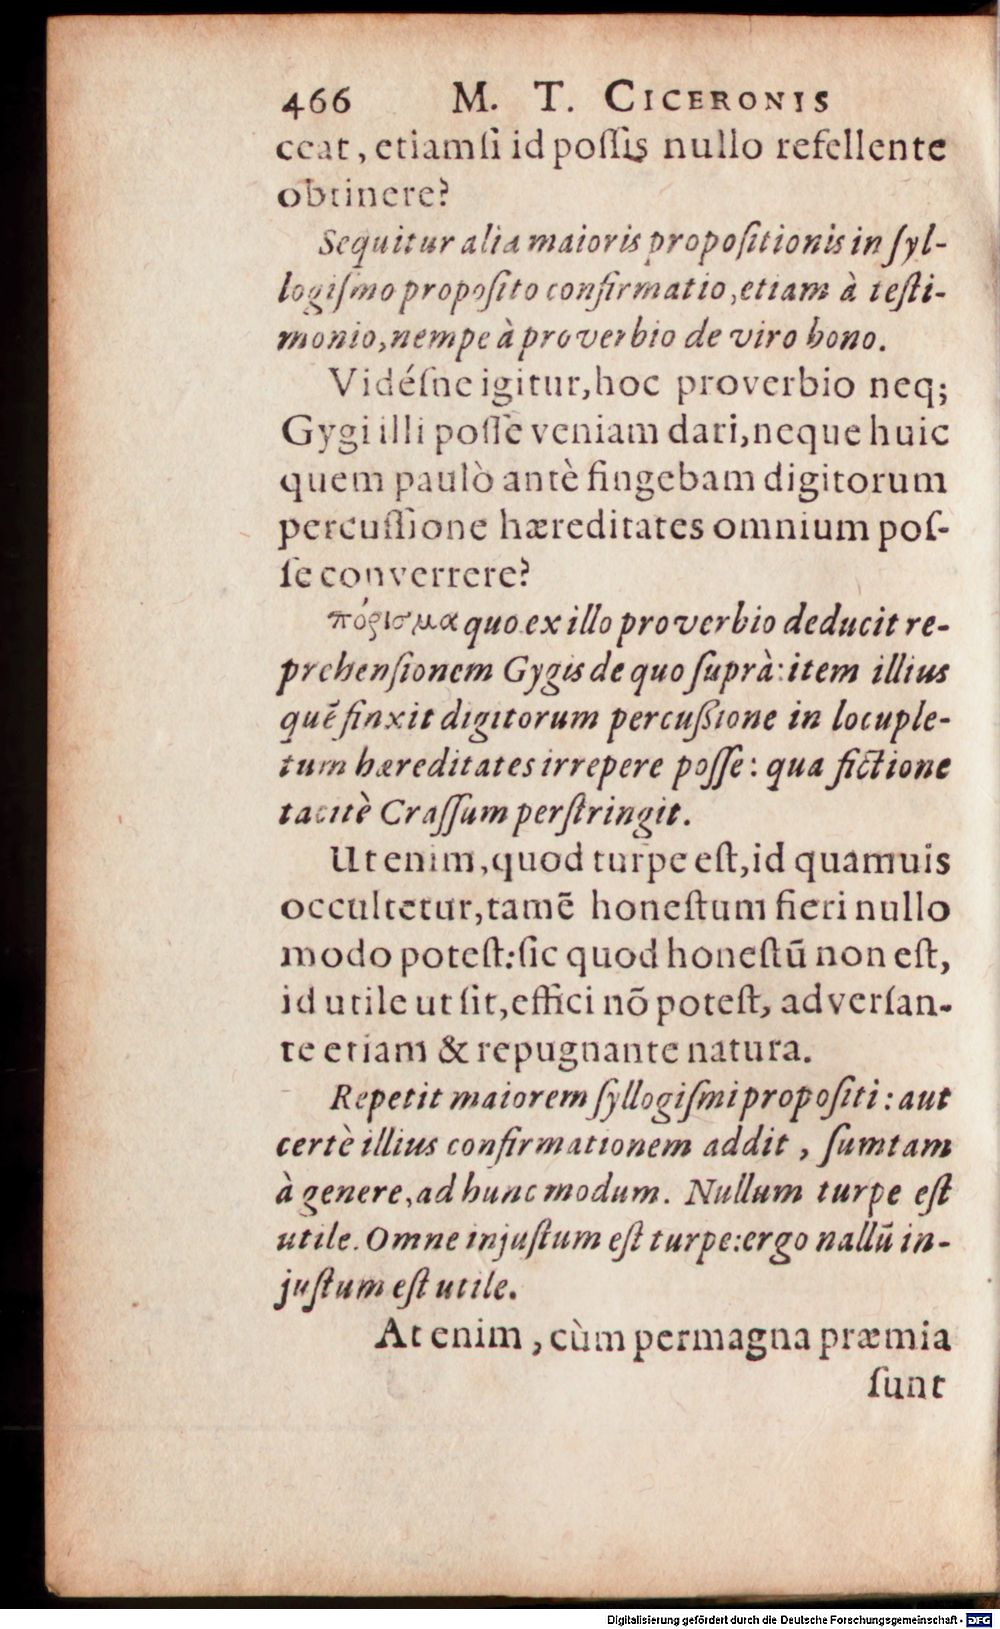 466 M. T. CICERONIS
ceat, etiamſi id poſſis nullo refellente
obtinere?
Sequitur alia maioris propoſitionis in ſyl-
logiſmo propoſito confirmatio, etiam à teſti-
monio, nempe à proverbio de viro bono.
Vidéſne igitur, hoc proverbio neq;
Gygi illi poſſe veniam dari, neque huic
quem paulò antè fingebam digitorum
percuſſione hæreditates omnium poſ-
ſe converrere?
πόρισμα quo ex illo proverbio deducit re-
prehenſionem Gygis de quo ſuprà: item illius
quē finxit digitorum percuſsione in locuple-
tum hæreditates irrepere poſſe: qua fictione
tacitè Craſſum perſtringit.
Ut enim, quod turpe eſt, id quamuis
occultetur, tamē honeſtum fieri nullo
modo poteſt: ſic quod honeſtū non eſt,
id utile ut ſit, effici nō poteſt, adverſan-
te etiam & repugnante natura.
Repetit maiorem ſyllogiſmi propoſiti: aut
certè illius confirmationem addit, ſumtam
à genere, ad hunc modum. Nullum turpe eſt
utile. Omne injuſtum eſt turpe: ergo nallū in-
juſtum eſt utile.
At enim, cùm permagna præmia
ſunt
Digitalisierung gefördert durch die Deutsche Forschungsgemeinschaft - DFG